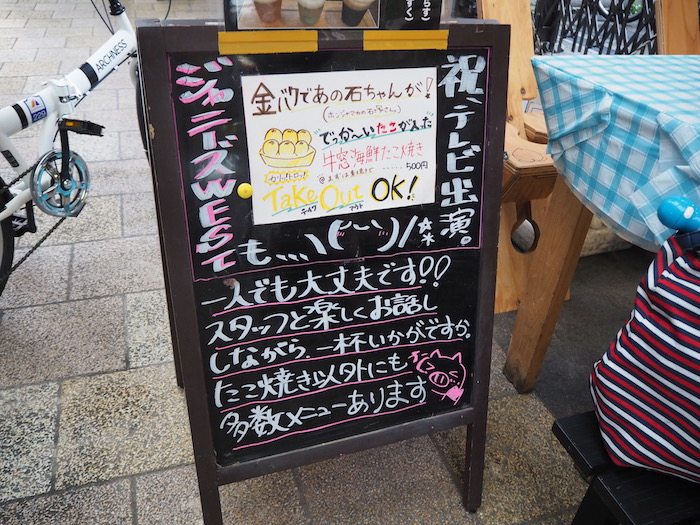 祝、テレビ出演。
金バクであの石ちゃんが!
(ホンジャマカの石塚さん)
でっか〜いたこが入った
牛窓海鮮たこ焼き
500円
Take Out OK!
テイク アウト
ジャニーズWEST
も、、、\(^-^)/**
一人でも大丈夫です!!
スタッフと楽しくお話し
しながら、一杯いかがですか。
たこ焼き以外にも
多数メニューあります
ARCHNESS
229